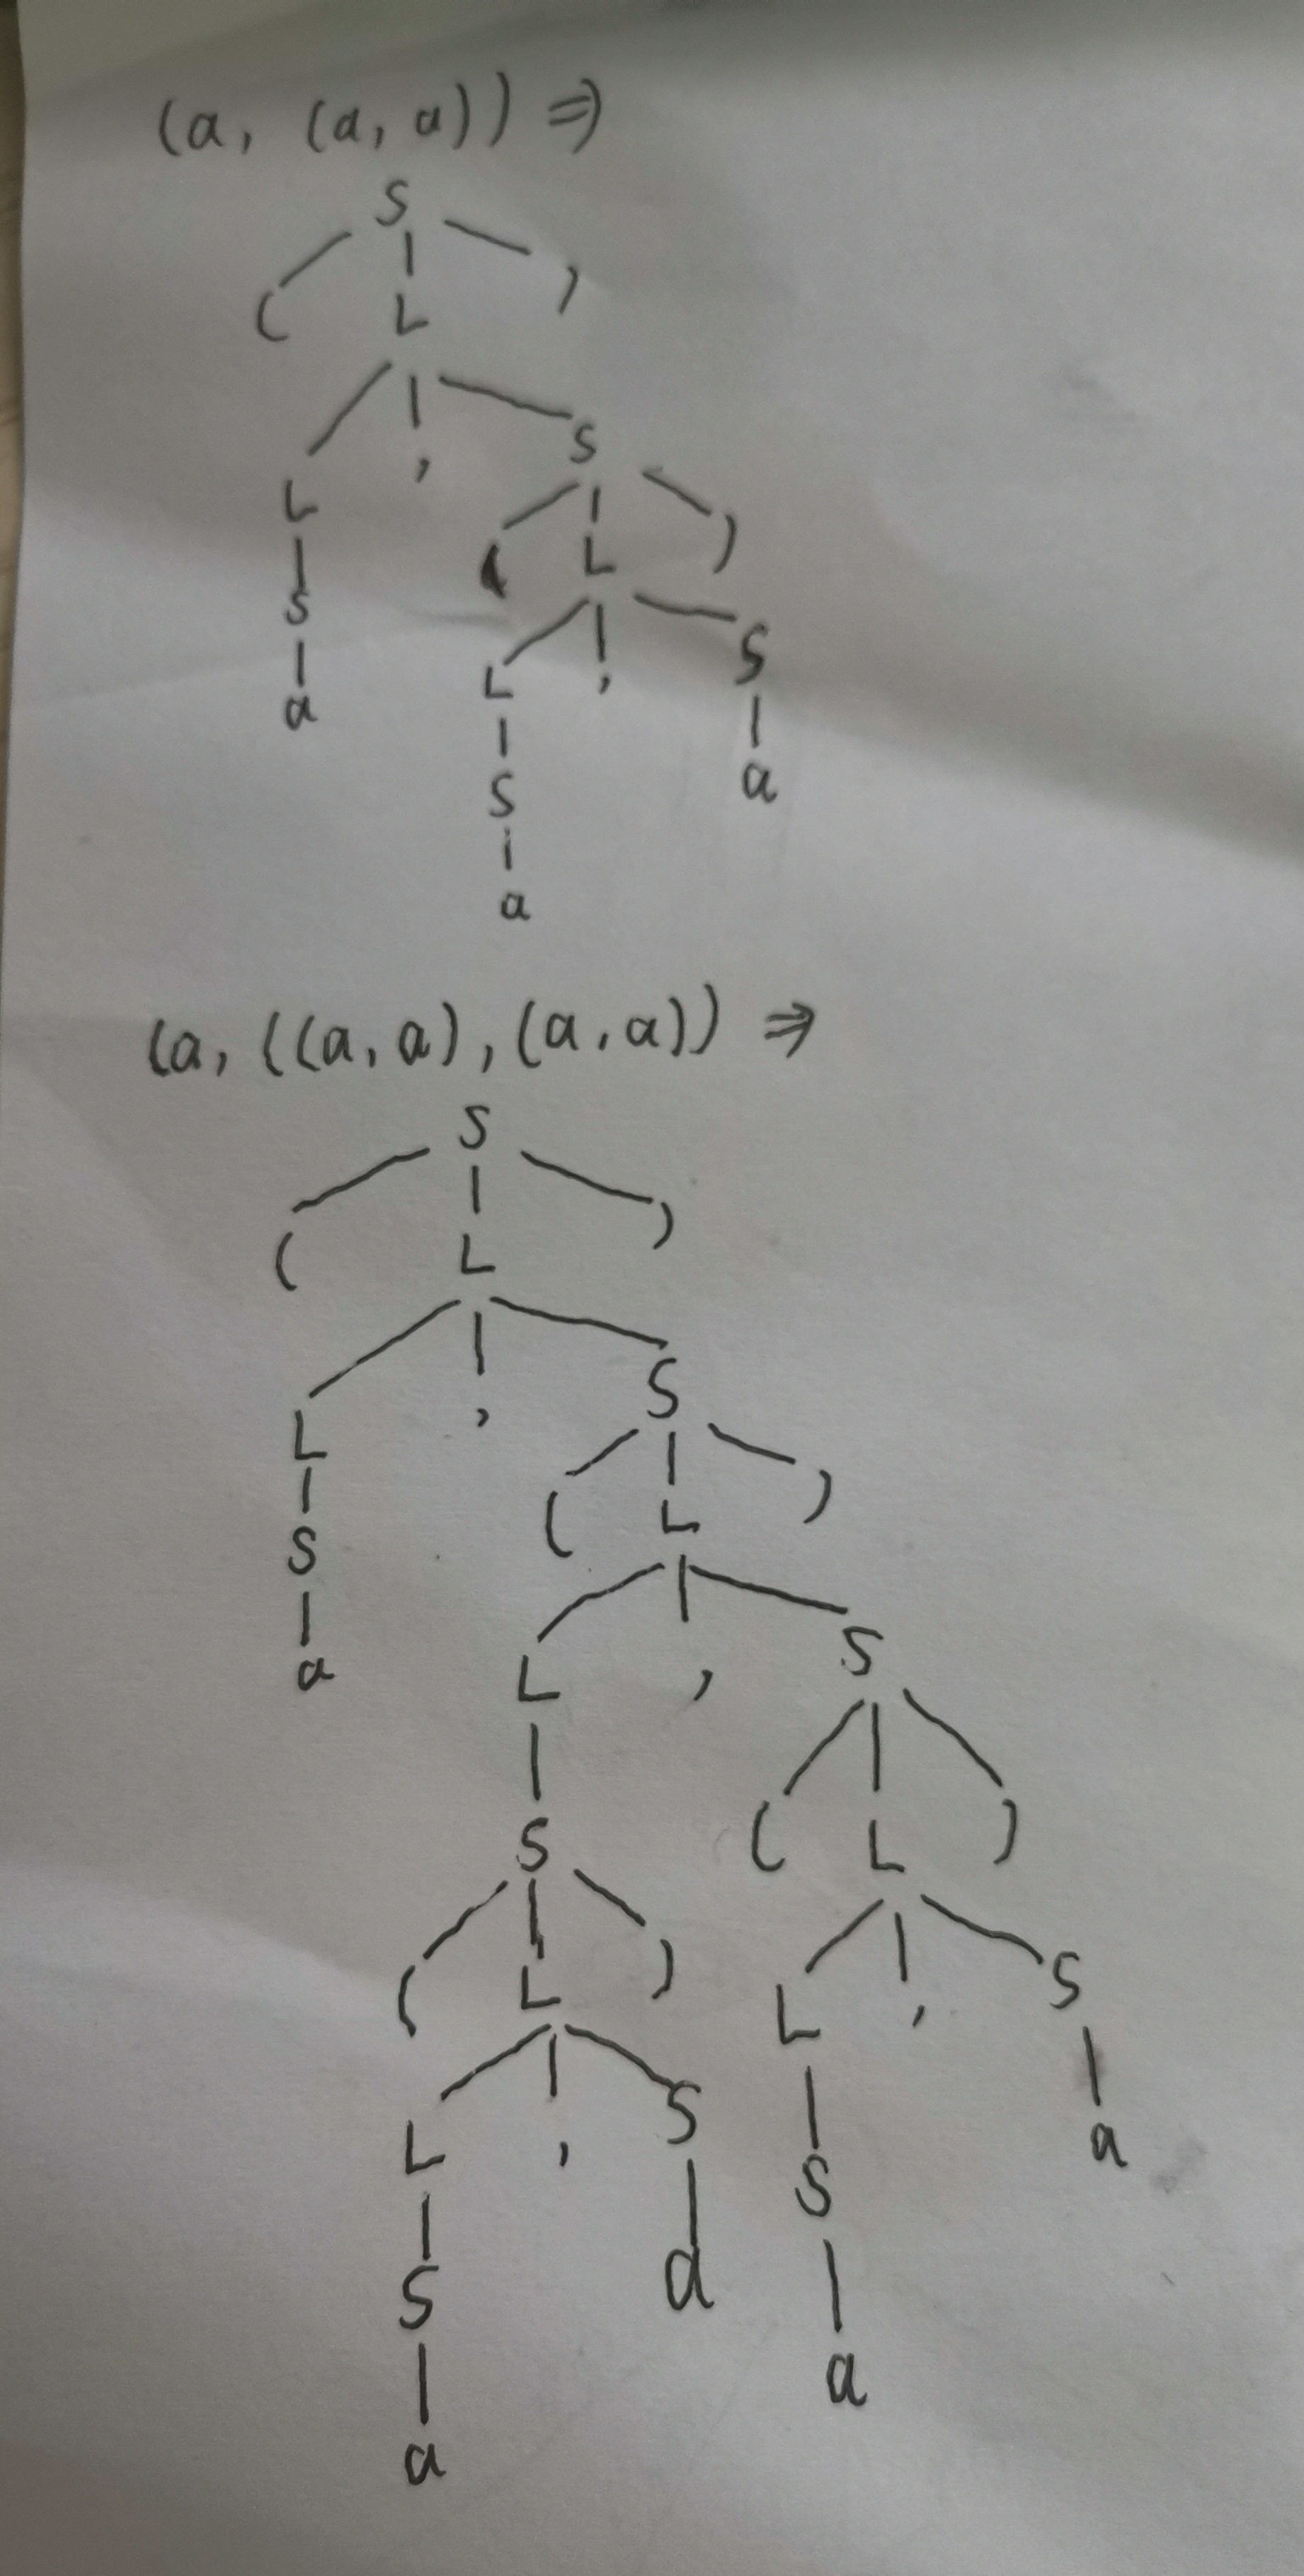 (a, (a, a)) ⇒
S
( L )
L , S
( L )
S
L , S
a
S a
a
(a, ((a, a), (a, a)) ⇒
S
( L )
L , S
( L )
S
a
L , S
S ( L )
( L ) L , S
L , S S a
S a a
a